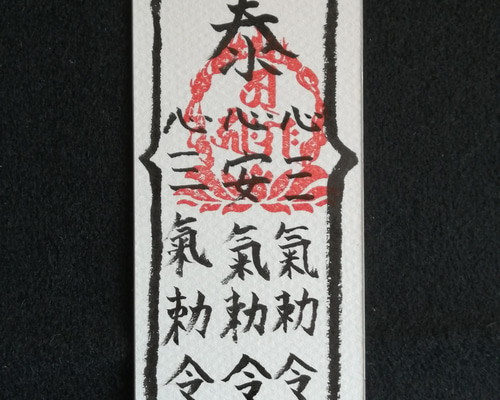 泰
心三氣勅令
心安氣勅令
心三氣勅令